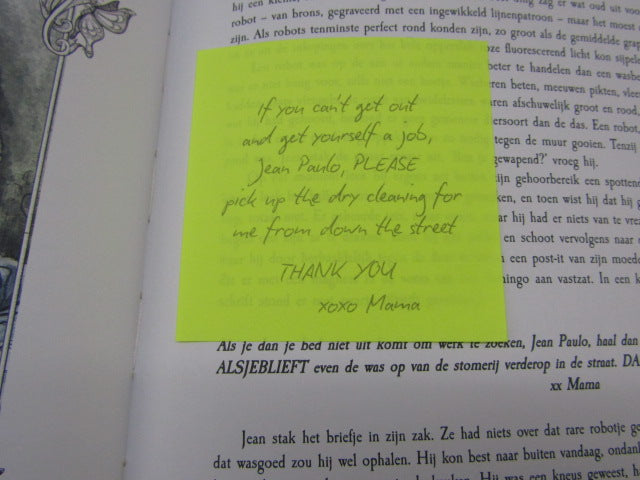 hij een kleine,
robot – van brons, gegraveerd met een ingewikkeld lijnenpatroon – maar het moest
zijn. Als robots tenminste perfect rond konden zijn, zo groot als de gemiddelde
oze fluorescerend licht kon
beter te handelen dan een
beten, meeuwen pikten,
waren afschuwelijk groot en rood,
persoort dan de das. Een robot,
tegen de muur gooien. Tenzij
gewapend?' vroeg hij.
zijn gehoorbereik een
ken, en toen wist hij dat hij
haar hij had er niets van te
en schoot vervolgens naar
een post-it van zijn
mingo aan vastzat. In een
If you can't get out
and get yourself a job,
Jean Paulo, PLEASE
pick up the dry cleaning for
me from down the street
THANK YOU
xoxo Mama
Als je dan je bed niet uit komt om werk te zoeken, Jean Paulo, haal dan
ALSJEBLIEFT even de was op van de stomerij verderop in de straat.
xx Mama
Jean stak het briefje in zijn zak. Ze had niets over dat rare robotje
dat wasgoed zou hij wel ophalen. Hij kon best naar buiten vandaag,
Hij was een kneus geweest,